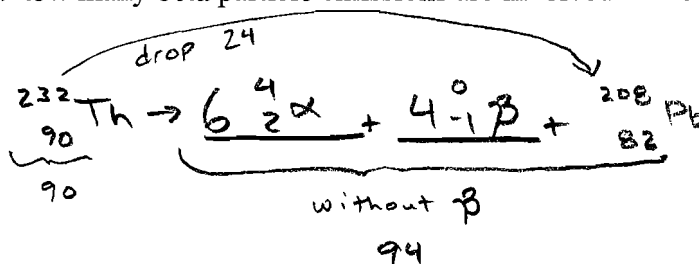 drop 24
²³²₉₀Th → 6 ⁴₂α + 4 ⁰₋₁β + ²⁰⁸₈₂Pb
90
without β
94